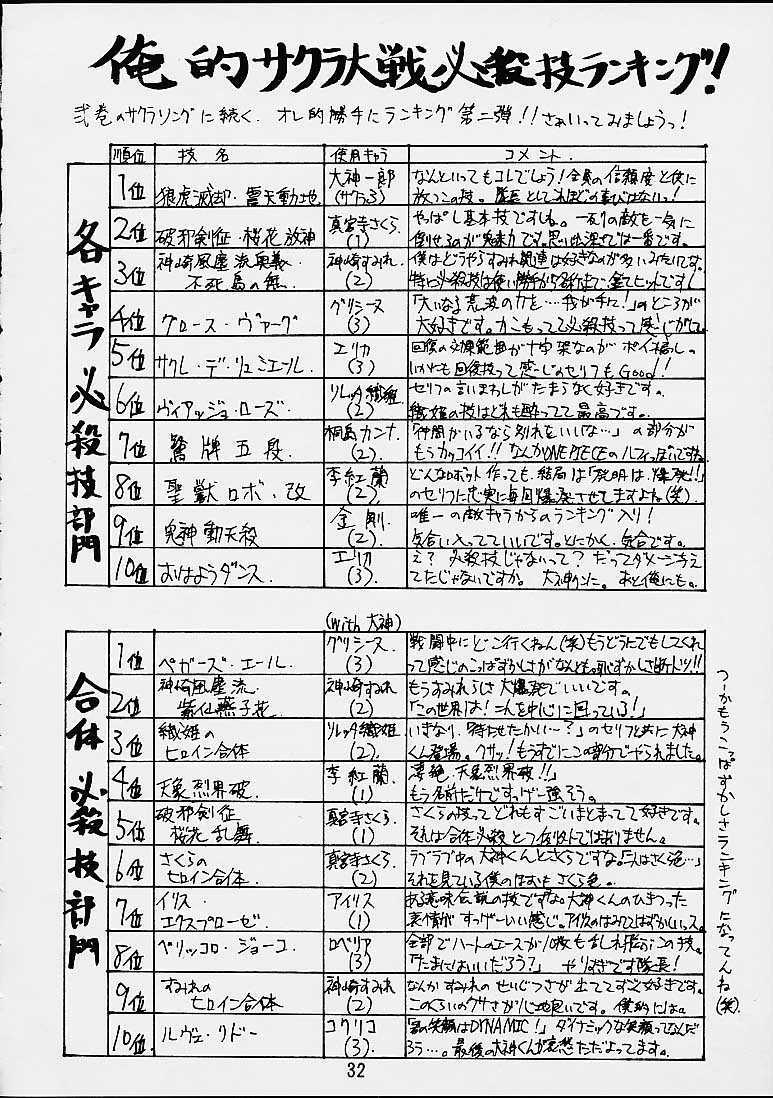 俺的サクラ大戦必殺技ランキング!
弐巻のサクラソングに続く、オレ的勝手にランキング第二弾!!さぁいってみましょうっ!
各キャラ必殺技部門
順位 技名 使用キャラ コメント
1位 狼虎滅却・震天動地 大神一郎 なんといってもコレでしょう!全員の信頼度と供に
(サクラ3) 放つこの技。隊長としてこれほどの喜びはないっ!
2位 破邪剣征・桜花放神 真宮寺さくら やっぱし基本技ですしね。一列の敵も一気に
(1) 倒せるのが魅力です。思い出深さでは一番です。
3位 神崎風塵流奥義・ 神崎すみれ 僕はどうやらすみれ関連は好きなのが多いみたいです。
不死鳥の舞 (2) 特に必殺技は使い勝手から名前まで全てヒットです!
4位 グロース・ヴァーグ グリシーヌ 「大いなる荒波の力を…我が手に!」のところが
(3) 大好きです。力こもってて必殺技って感じがして。
5位 サクレ・デ・リュミエール エリカ 回復の効果範囲が十字架なのがポイント高しの
(3) いかにも回復技って感じのセリフもGood!
6位 ヴィアッジョ・ローズ ソレッタ織姫 セリフの言いまわしがたまらなく好きです。
(2) 織姫の技はどれも酔ってて最高です。
7位 鷲牌五段 桐島カンナ 「仲間がいるなら別れをいいな…」の部分が
(2) もうカッコイイ!!なんかONE PIECEのルフィっぽいですね
8位 聖獣ロボ・改 李紅蘭 どんなロボット作っても、結局は「発明は、爆発!!」
(2) のセリフに忠実に毎回爆発させてますよね(笑)
9位 鬼神轟天殺 金剛 唯一の敵キャラからのランキング入り!
(2) 気合い入ってていいです。とにかく、気合です。
10位 おはようダンス エリカ え?必殺技じゃないって?だってダメージ与え
(3) てたじゃないですか。大神クンに。あと俺にも。
合体必殺技部門
(with 大神)
1位 ペガーズ・エール グリシーヌ 戦闘中にどこ行くねん(笑)もうどうにでもしてくれ
(3) って感じのこっぱずかしさがなんとも。恥ずかしさ断トツ!!
2位 神崎風塵流 神崎すみれ もうすみれらしさ大爆発でいいです。
紫仙燕子花 (2) 「この世界は!二人を中心に回っている!」
3位 織姫の ソレッタ織姫 いきなり、「待たせたかい〜?」のセリフと共に大神
ヒロイン合体 (2) くん登場。クサッ!もうすでにこの部分でやられました。
4位 天象烈界破 李紅蘭 「凄絶、天象烈界破!!」
(1) もう名前だけですっげー強そう。
5位 破邪剣征 真宮寺さくら さくらの技ってどれもすごいまとまってて好きです。
桜花乱舞 (1) それは合体必殺とて例外ではありません。
6位 さくらの 真宮寺さくら ラブラブ中の大神くんとさくらですな。「人はさくら色…」
ヒロイン合体 (2) それを見ている僕のほおもさくら色。
7位 イリス・ アイリス ある意味伝説の技ですな。大神くんのひきつった
エクスプローゼ (1) 表情がすっげーいい感じ。アイリスのはみててはずかしいっス。
8位 ペリッコロ・ジョーコ ロベリア 全部でハートのエースが10枚も
(3) 「たまにはいいだろう?」やりすぎです隊長!
9位 すみれの 神崎すみれ なんかすみれのせいじつさが出ててすごく好きです。
ヒロイン合体 (2) このくらいのクサさが心地良いです。僕的には。
10位 ルヴェ・リドー コクリコ 「君の笑顔はDYNAMIC!」ダイナミックな笑顔ってなんだ
(3) ろう…。最後の大神くんが哀愁ただよってます。
つーかもうこっぱずかしさランキングになってんね(笑)
32